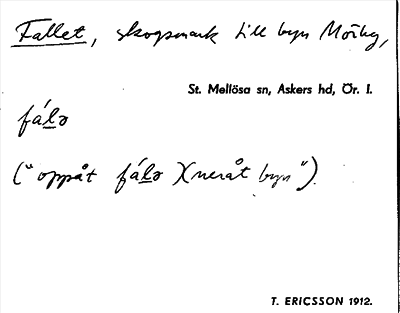 Fallet, skogsmark till byn Mörby,
St. Mellösa sn, Askers hd, Ör. l.
fálə
(“oppåt fálə )( neråt byn”).
T. ERICSSON 1912.